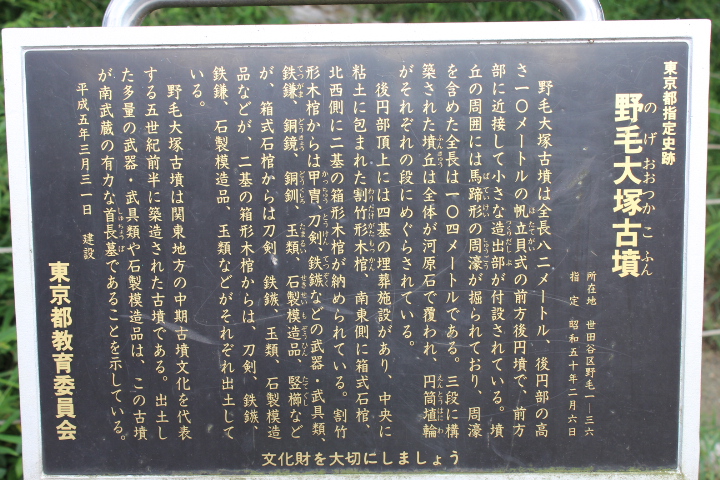 東京都指定史跡
野毛大塚古墳
のげおおつかこふん
所在地 世田谷区野毛一―三六
指定 昭和五十年二月六日
野毛大塚古墳は全長八二メートル、後円部の高
さ一〇メートルの帆立貝式の前方後円墳で、前方
部に近接して小さな造出部が付設されている。墳
丘の周囲には馬蹄形の周濠が掘られており、周濠
を含めた全長は一〇四メートルである。三段に構
築された墳丘は全体が河原石で覆われ、円筒埴輪
がそれぞれの段にめぐらされている。
後円部頂上には四基の埋葬施設があり、中央に
粘土に包まれた割竹形木棺、南東側に箱式石棺、
北西側に二基の箱形木棺が納められている。割竹
形木棺からは甲冑、刀剣、鉄鏃などの武器・武具類、
鉄鎌、銅鏡、銅釧、玉類、石製模造品、竪櫛など
が、箱式石棺からは刀剣、鉄鏃、玉類、石製模造
品などが、二基の箱形木棺からは、刀剣、鉄鏃、
鉄鎌、石製模造品、玉類などがそれぞれ出土して
いる。
野毛大塚古墳は関東地方の中期古墳文化を代表
する五世紀前半に築造された古墳である。出土し
た多量の武器・武具類や石製模造品は、この古墳
が南武蔵の有力な首長墓であることを示している。
平成五年三月三一日 建設
東京都教育委員会
文化財を大切にしましょう